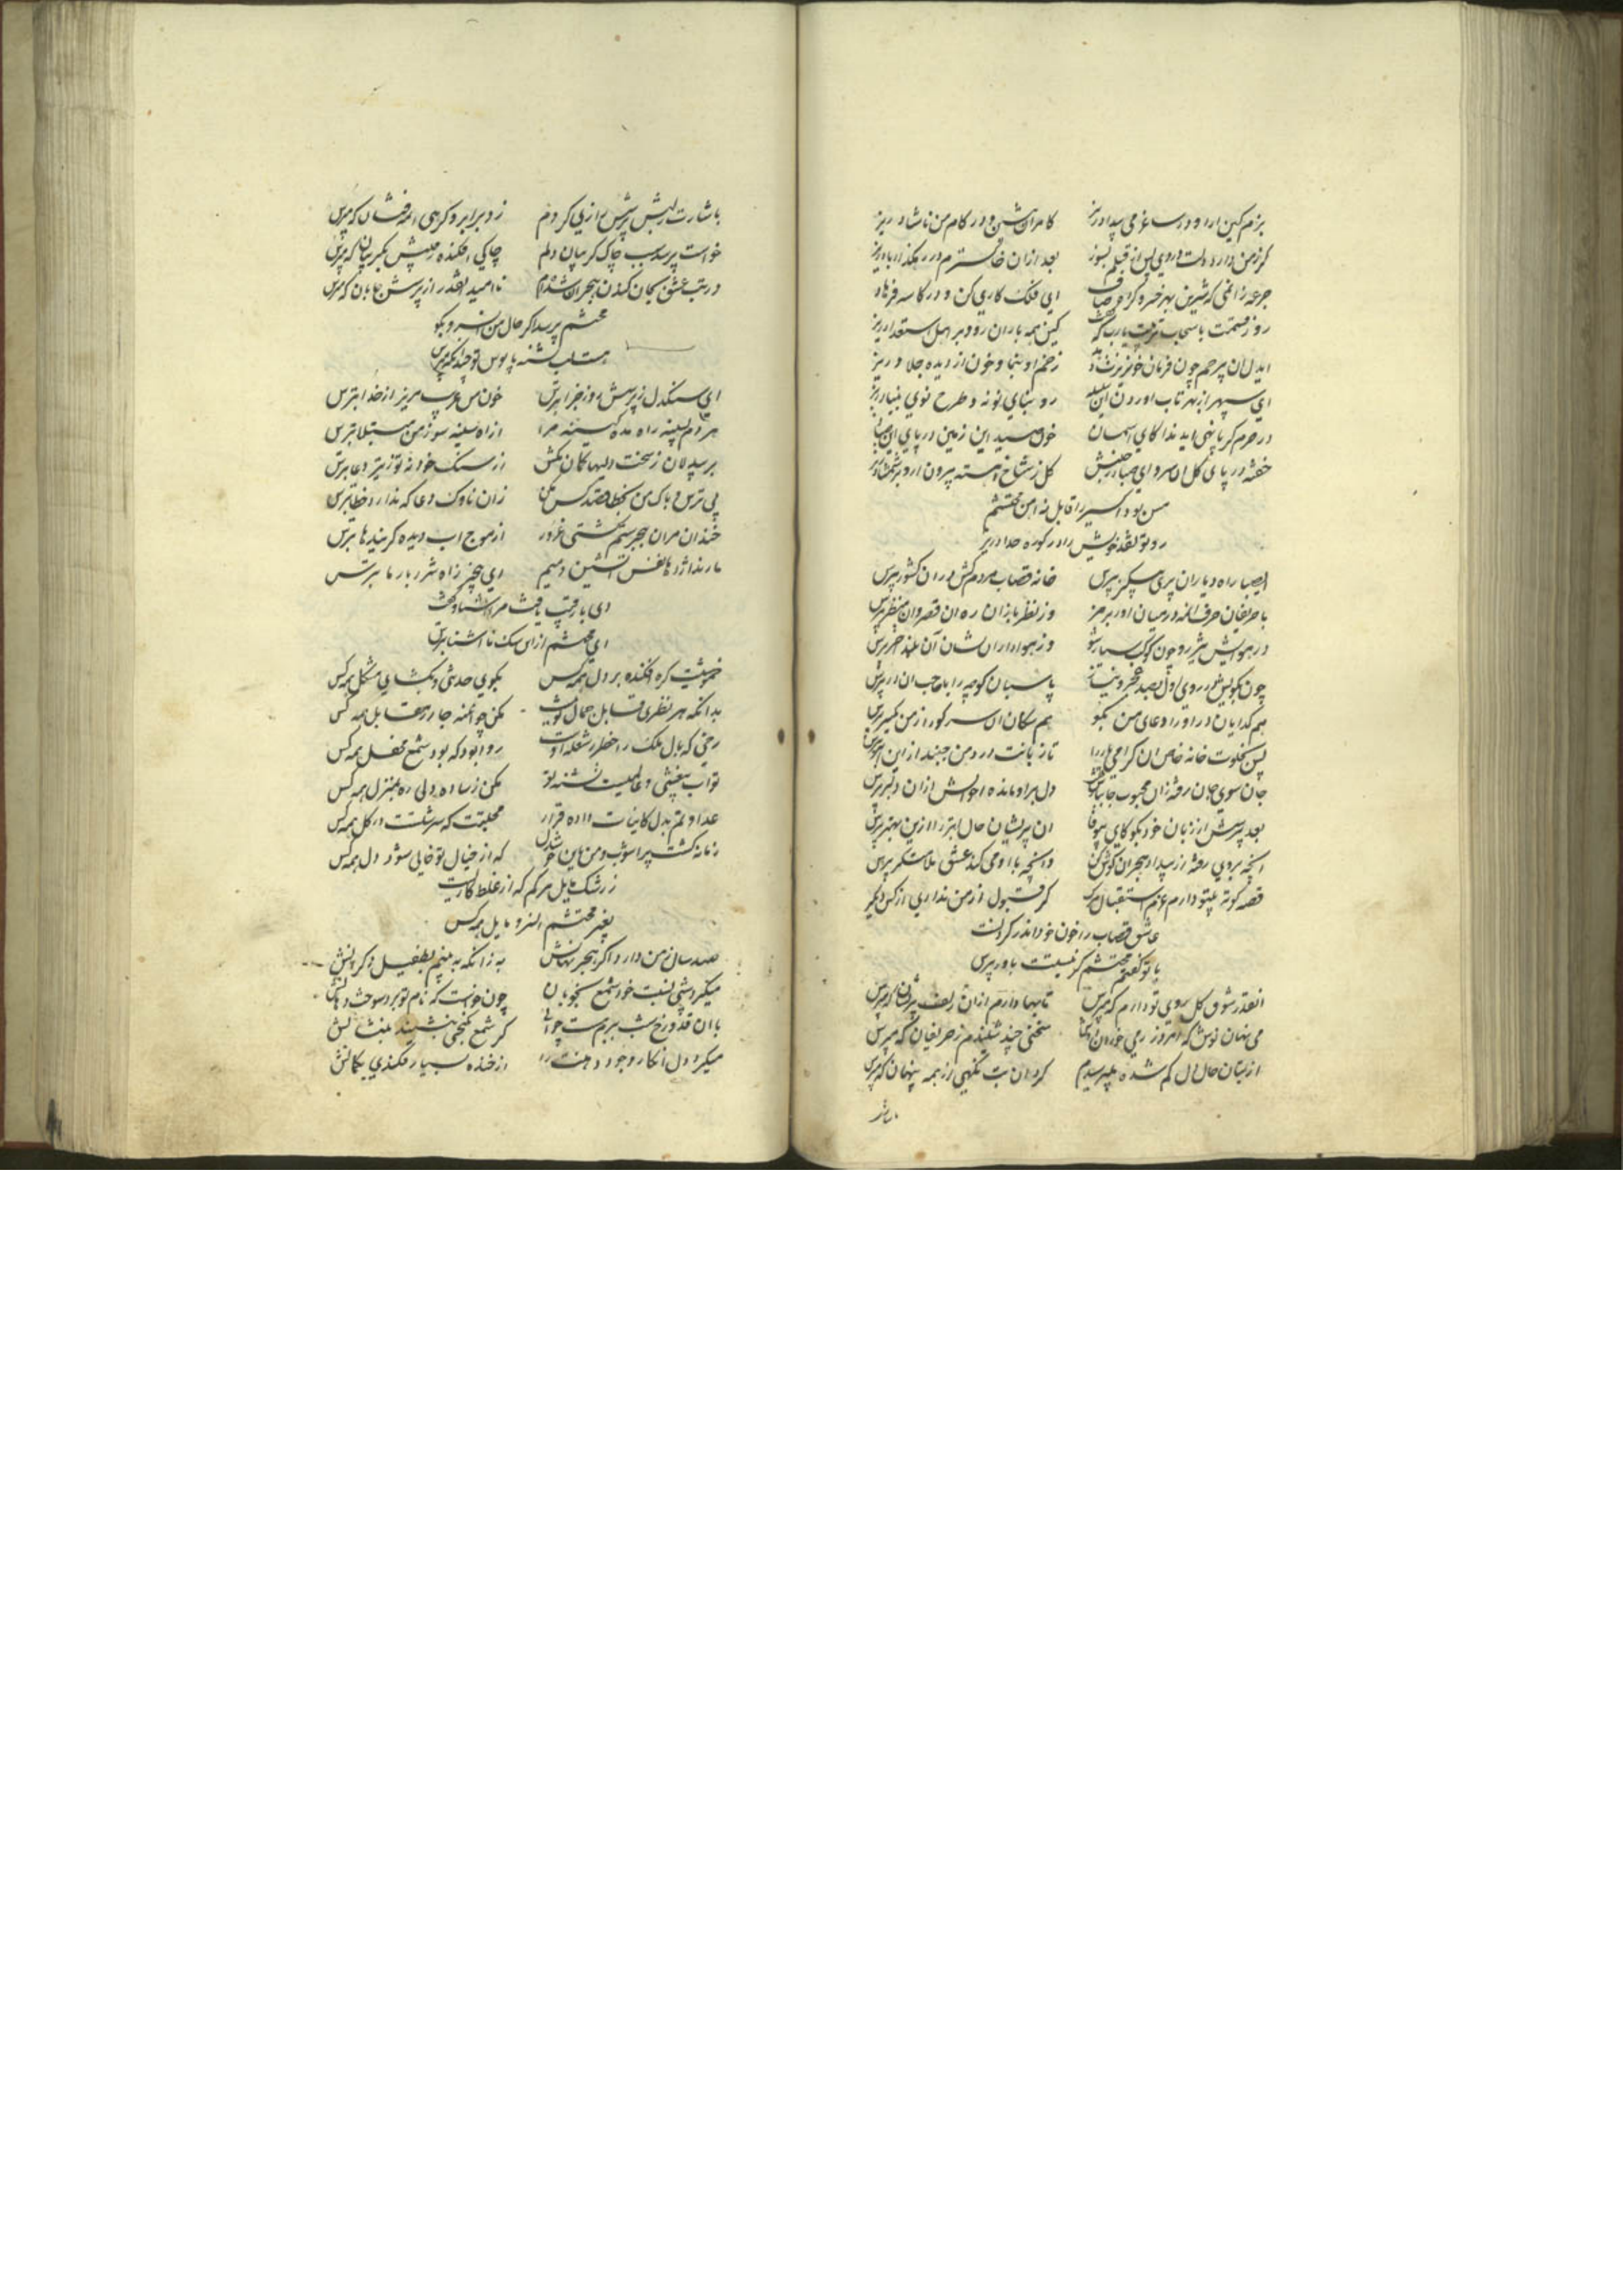 بزم کین ارا و در ساغر می بیداد ریز کامران بنشین و در کام من ناشاد ریز
کر ز من داری دلت داری پس از قتلم بسوز بعد ازان خاکسترم در رهکذار باد ریز
جرعه زانمی که شیرین بهر خسرو کرد صاف ای فلک کاری کن و در کاسه فرهاد
روز قسمت با سحاب تربیت یارب که کفت کین همه باران رو و بر اهل استعداد ریز
ایدل ان بیرحم چون فرمان بخونریزت دهد زخم او بنما و خون از دیده جلاد ریز
ای سپهر از بهر تاب اوردن این رو بنای نو نه و طرح نوی بنیاد ریز
در حرم کر پا نهی اید ندا کای اسمان خون صید این زمین در پای این
خفته در پای کل ان سرو ای صبا در جنبش کل ز شاخ اهسته بیرون ار و بر شمشاد ریز
مس بود اکسیر را قابل نه اهن محتشم
رو تو نقد خویش را در کوره حداد ریز
ایصبا راه دیاران پری پیکر بپرس خانه قصاب مردم کش دران کشور بپرس
با حریفان حرف انمه در میان اور برمز وز نظر بازان ره ان قصر و ان منظر بپرس
در هوایش شبرو چون کوکب سیار شو وز هواداران نشان آن بلند اختر بپرس
چون بکویش رو اوری اول بصد عجز و نیاز پاسبان کوچه را با صاحب ان در بپرس
هم کدایان در او را دعای من بکو هم سکان ان سر کو را ز من یکسر بپرس
پس بخلوت خانه خاص ان کرامی تازه را تا زبانت در دهن جنبد ازین ابتر بپرس
جان سوی جانان رفته زان محبوب جانها دل بر او مانده احوالش ازان دلبر بپرس
بعد پرسش از زبان خود بکو کای بیوفا ان پریشان حال ابتر را ازین بهتر بپرس
انچه بروی رفته از بیداد هجران کوش کن وانچه با او می کند عشق ملامتکر بپرس
قصه کوته بیتو دارم عزم استقبال مرک کر قبول از من نداری از کس دیکر
عاشق قصاب را خون خود اندر کردنست
با تو کفتم محتشم کر نیستت باور بپرس
انقدر شوق کل روی تو دارم که مپرس تابها دارم ازان زلف پریشان که مپرس
می پنهان نوش که امروز ز می خوردن سخنی چند شنیدم ز حریفان که مپرس
از بتان حال دل کم شده میپرسیدم کرد ان بت نکهی از همه پنهان که مپرس
باشارت
باشارت ز لبش پرسش رازی کردم زد بر ابرو کرهی انمه فتان که مپرس
خواست پرسد سبب چاک کریبان دلم چاکی افکنده رقیبش بکریبان که مپرس
در تب عشق بجان کندن هجران شده‌ام ناامید انقدر از پرسش جانان که مپرس
محتشم پرسد اکر حال من ان سرو بکو
هست لب تشنه پابوس تو چندانکه مپرس
ای سنکدل ز پرسش روز جزا بترس خون من غریب مریز از خدا بترس
هر دم بسینه راه مده کینه مرا از اه سینه سوز من مبتلا بترس
بر بیدلان ز سخت دلیها کمان مکش از سنک خود نه تو ز تیر دعا بترس
بی ترس و باک من بخطا قصد کس مکن زان ناوک دعا که ندارد خطا بترس
خندان مران ببحر ستم کشتی غرور از موج اب دیده کریندها بترس
ما رند اژدها نفس اتشین دمیم ای بیخبر ز اه شرربار ما بترس
دی با رقیب یافت مرا اشنا و کفت
ای محتشم از ان سک نا اشنا بترس
خموشیت کره افکنده بر دل همه کس بکوی حدیثی و بکشای مشکل همه کس
بدانکه هر نظری قابل جمال تو نیست مکن چو اینه جا در مقابل همه کس
رخی که بال ملک را خطر ز شعله اوست روا بود که بود شمع محفل همه کس
تو اب بخشی و عالمیست تشنه تو مکن ز ساده دلی ره بمنزل همه کس
عداوتم بدل کاینات داده قرار محبتت که سرشتست در کل همه کس
زمانه کشت پر اشوب و من باین خوشدل که از خیال تو خالی شود دل همه کس
ز رشک مایل مرکم که از غلط کاریست
بغیر محتشم ان سرو مایل همه کس
صد سال ز من دارد اکر هجر نهانش به زانکه ببینم بطفیل دکرانش
میکرد شبی نسبت خود شمع بخوبان چون خواست که نام تو برد سوخت زبانش
با ان قد و رخ شب ببزمست چوائی کر شمع بکنجی بنشیند بنشانش
میکرد دل انکار وجود دهنت را از خنده بسیار فکندی بکمانش